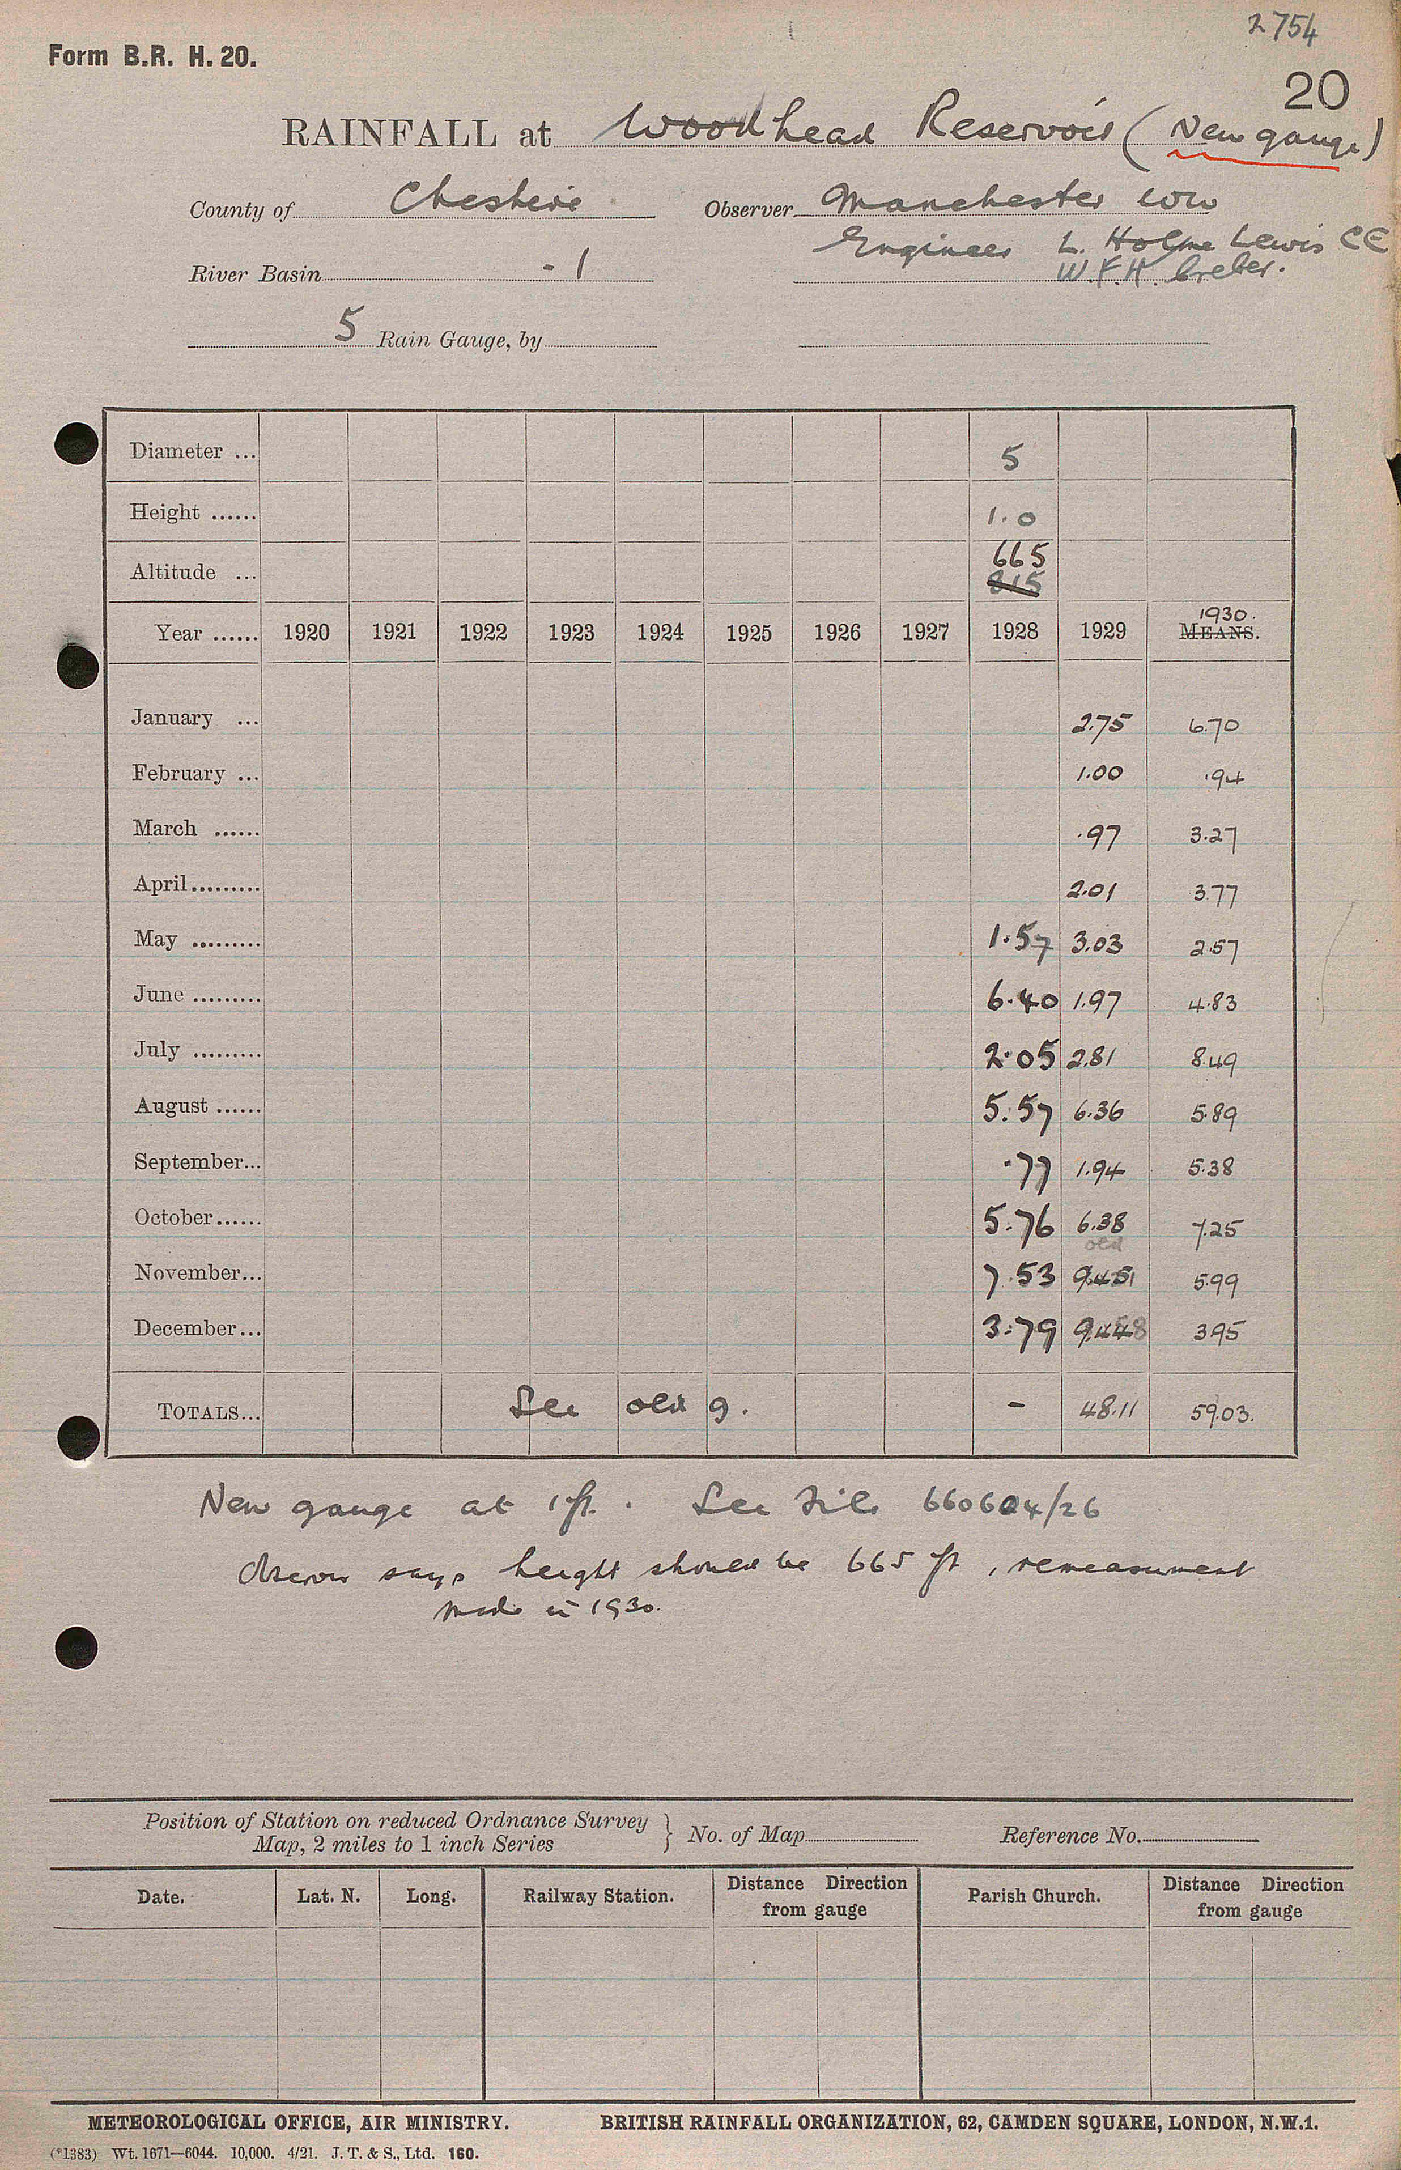 2754
Form B.R. H. 20.
20
RAINFALL at Woodhead Reservoir (New gauge)
County of Cheshire Observer Manchester Cow
Engineer L. Holme Lewis CE
River Basin - 1 W.F.H. Creber.
5 Rain Gauge, by
Diameter ... 5
Height ...... 1.0
Altitude ... 665
815
1930.
Year ...... 1920 1921 1922 1923 1924 1925 1926 1927 1928 1929 MEANS.
January ... 2.75 6.70
February ... 1.00 .94
March ...... .97 3.27
April......... 2.01 3.77
May ......... 1.57 3.03 2.57
June ......... 6.40 1.97 4.83
July ......... 2.05 2.81 8.49
August ...... 5.57 6.36 5.89
September... .77 1.94 5.38
October...... 5.76 6.38 7.25
old
November... 7.53 5.99
December... 3.79 3.95
TOTALS... See old g. - 48.11 59.03.
New gauge at 1 ft. See File 660604/26
Observer says height should be 665 ft, remeasurement
made in 1930.
Position of Station on reduced Ordnance Survey
Map, 2 miles to 1 inch Series } No. of Map Reference No.
Date. Lat. N. Long. Railway Station. Distance Direction from gauge Parish Church. Distance Direction from gauge
METEOROLOGICAL OFFICE, AIR MINISTRY. BRITISH RAINFALL ORGANIZATION, 62, CAMDEN SQUARE, LONDON, N.W.1.
(*1383) Wt. 1671—6044. 10,000. 4/21. J. T. & S., Ltd. 160.